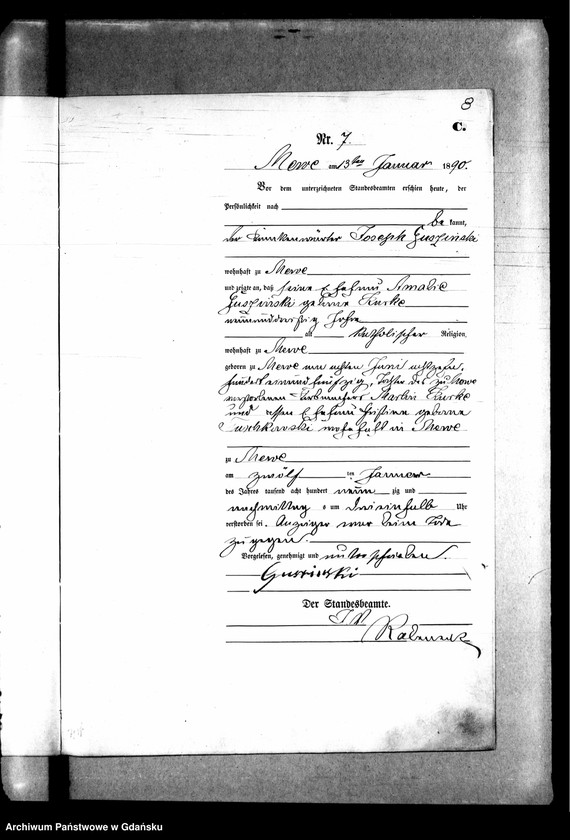 8
C.
Nr. 7.
Mewe am 13ten Januar 1890.
Vor dem unterzeichneten Standesbeamten erschien heute, der
Persönlichkeit nach
be kannt,
der Joseph Guszinski
wohnhaft zu Mewe
und zeigte an, daß seine Ehefrau Amalie
Guszinski geborne
neununddreißig Jahre
alt katholischer Religion,
wohnhaft zu Mewe
geboren zu Mewe am achten Juni achtzehn-
hundert einundfünfzig, Tochter des zu Mewe
verstorbenen Martin
und dessen Ehefrau geborne
wohnhaft in Mewe
zu Mewe
am zwölf ten Januar
des Jahres tausend acht hundert neun zig und
nachmittag s um dreieinhalb Uhr
verstorben sei. Anzeiger war beim Tode
zugegen.
Vorgelesen, genehmigt und unterschrieben.
Guszinski
Der Standesbeamte.
I V
Archiwum Państwowe w Gdańsku